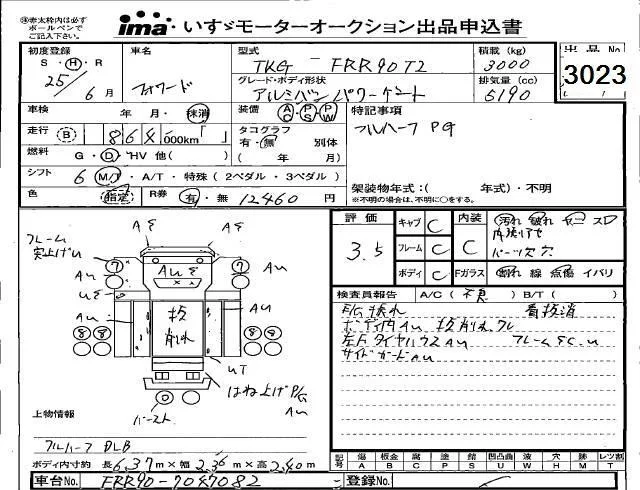 ㊟赤太枠内は必ず
ボールペンで
ご記入下さい。
ima いすゞモーターオークション出品申込書
初度登録
S・H・R
25年 6月
車名
フォワード
型式
TKG - FRR90T2
グレード・ボディ形状
アルミバン パワーゲート
積載 (kg)
3000
排気量 (cc)
5190
出品No
3023
車検
年 月・抹消
装備 AC PS PW
特記事項
フルハーフ PG
走行 B 864 000km「 」
タコグラフ
有・無 別体
( 年 月)
燃料
G・D・HV 他( )
シフト
6 M/T・A/T・特殊(2ペダル・3ペダル)
架装物年式:( 年式)・不明
※不明の場合は、不明に○をする。
色
指定
R券
有・無 12460円
評価
3.5
キャブ C
フレーム C
ボディ C
内装 C
Fガラス
汚れ 破れ ヤニ スレ
パーツ欠 穴
割れ 線 点傷 イバリ
検査員報告
A/C(不良) B/T( )
ボディ内AU
左F タイヤハウスAU
サイドガードAU
フレーム
AE
AE
AU
AUE
AU
UE
AU
AU
7
7
8 8
8 8
削れ
UT
はね上げP/G
AU
バースト
上物情報
フルハーフ DLB
ボディ内寸約 長6.37m×幅2.36m×高2.40m
記号
傷 板金 腐 塗 錆 凹凸曲 波 穴 跡 レツ割
A B C P S U W H M T
車台No.
FRR90-7047082
登録No.